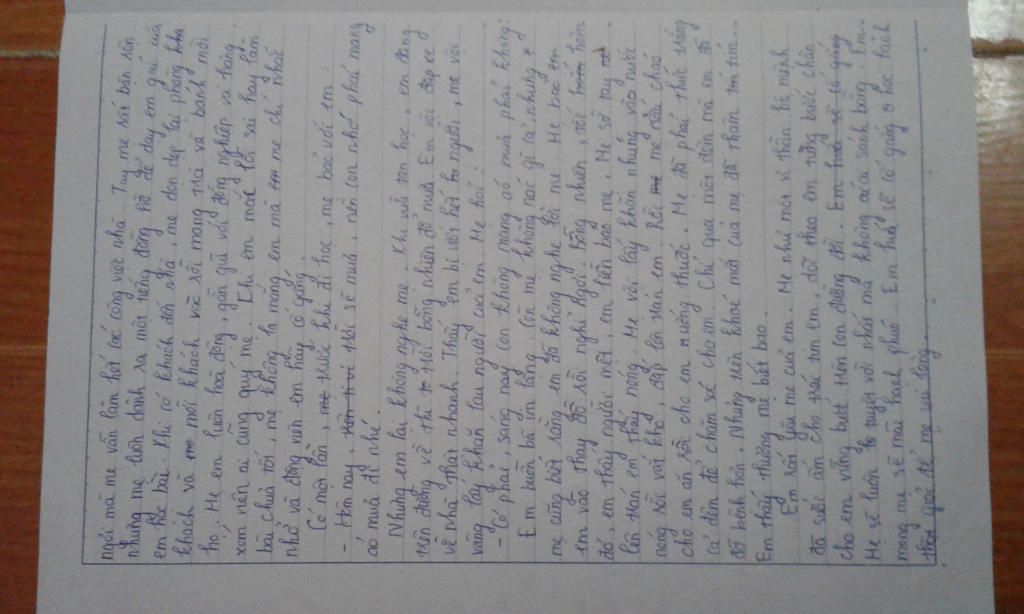 ngồi mà mẹ vẫn làm hết các công việc nhà. Tuy mẹ rất bận rộn
nhưng mẹ luôn dành ra một tiếng đồng hồ để dạy em gái của
em học bài. Khi có khách đến nhà, mẹ dọn dẹp lại phòng
khách và mời khách vào rồi mang trà và bánh mời
họ. Mẹ em luôn hoà đồng, gần gũi với đồng nghiệp và hàng
xóm nên ai cũng quý mẹ. Khi em mắc lỗi sai hay làm
bài chưa tốt, mẹ không la mắng em mà mẹ chỉ nhắc
nhở và động viên em hãy cố gắng.
Có một lần, trước khi đi học, mẹ bảo với em:
- Hôm nay, trời sẽ mưa, nên con nhớ phải mang
áo mưa đi nhé.
Nhưng em lại không nghe mẹ. Khi vừa tan học, em đang
trên đường về thì trời bỗng nhiên đổ mưa. Em vội đạp xe
về nhà thật nhanh. Thấy em bị ướt hết người, mẹ vội
vàng lấy khăn lau người của em. Mẹ hỏi:
- Có phải, sáng nay con không mang áo mưa phải không?
Em buồn bã im lặng. Còn mẹ không nói gì cả, nhưng
mẹ cũng biết rằng em đã không nghe lời mẹ. Mẹ bảo
em vào thay đồ rồi nghỉ ngơi. Bỗng nhiên, tối hôm
đó, em thấy người mệt, em liền bảo mẹ. Mẹ sờ tay
lên trán em thấy nóng. Mẹ vội lấy khăn nhúng vào nước
nóng rồi vắt khô, đắp lên trán em. Rồi mẹ nấu cháo
cho em ăn rồi cho em uống thuốc. Mẹ đã phải thức trắng
cả đêm để chăm sóc cho em. Chỉ qua một đêm mà em đã
đỡ bệnh hơn. Nhưng trên khoé mắt của mẹ đã thâm tím.
Em thấy thương mẹ biết bao.
Em rất yêu mẹ của em. Mẹ như một vị thần hộ mệnh
đã sưởi ấm cho trái tim em, dõi theo em từng bước chân
cho em vững bước trên con đường đời.
Mẹ sẽ luôn tuyệt vời nhất mà không ai có thể sánh bằng. Em
mong mẹ sẽ mãi hạnh phúc. Em hứa sẽ cố gắng học hành
thật giỏi để mẹ vui lòng.